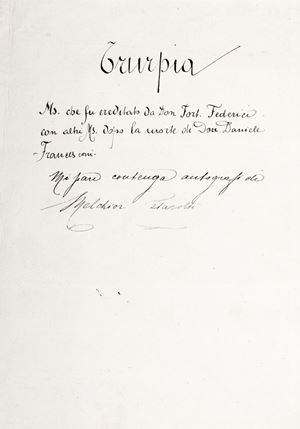 Trurpia
Ms. che fu ereditato da Don Fort. Federici
con altri Ms. dopo la morte di Don Daniele
Francesconi.
Mi pare contenga autografi di
Melchior